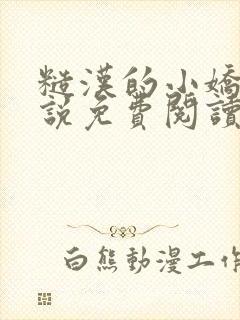 糙漢的小嬌
說免費閱讀
白熊動漫工作